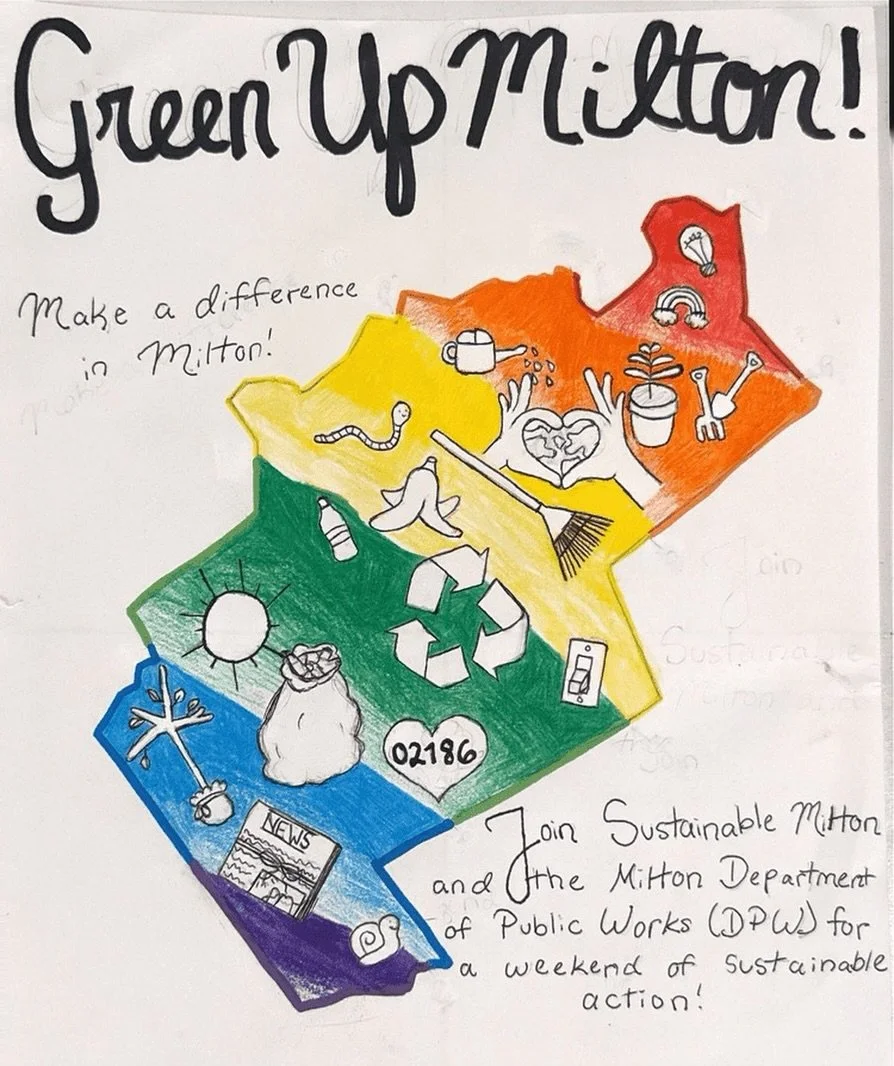 Green Up Milton!
Make a difference
in Milton!
02186
NEWS
Join Sustainable Milton
and the Milton Department
of Public Works (DPW) for
a weekend of sustainable
action!